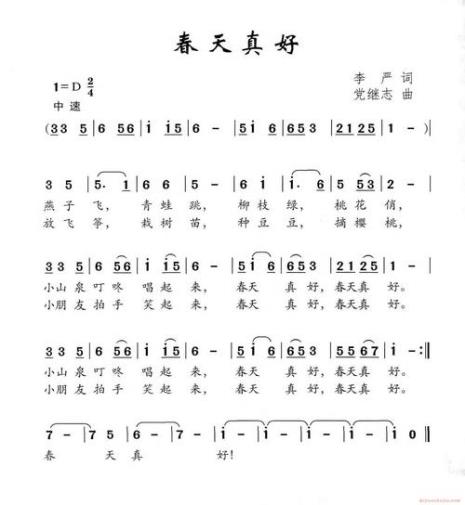 春天真好
1=D 2/4
中速
李 严 词
党继志 曲
(33 5 | 6 56 | i i5 | 6 - | 5i 6 | 653 | 2125 | 1 - )
3 5 | 5. 1 | 6 6 | 5 - | 5 i | i. 6 | 5 53 | 2 - |
燕子飞, 青蛙跳, 柳枝绿, 桃花俏,
放飞筝, 栽树苗, 种豆豆, 摘樱桃,
33 5 | 6 56 | i i5 | 6 - | 5i 6 | 653 | 2125 | 1 - |
小山泉叮咚唱起来, 春天真好,春天真好。
小朋友拍手笑起来, 春天真好,春天真好。
33 5 | 6 56 | i i5 | 6 - | 5i 6 | 653 | 5567 | i - :||
小山泉叮咚唱起来, 春天真好,春天真好。
小朋友拍手笑起来, 春天真好,春天真好。
7 - | 7 5 | 6 - | 7 - | i - | i - | i - | i 0 ||
春 天真 好!